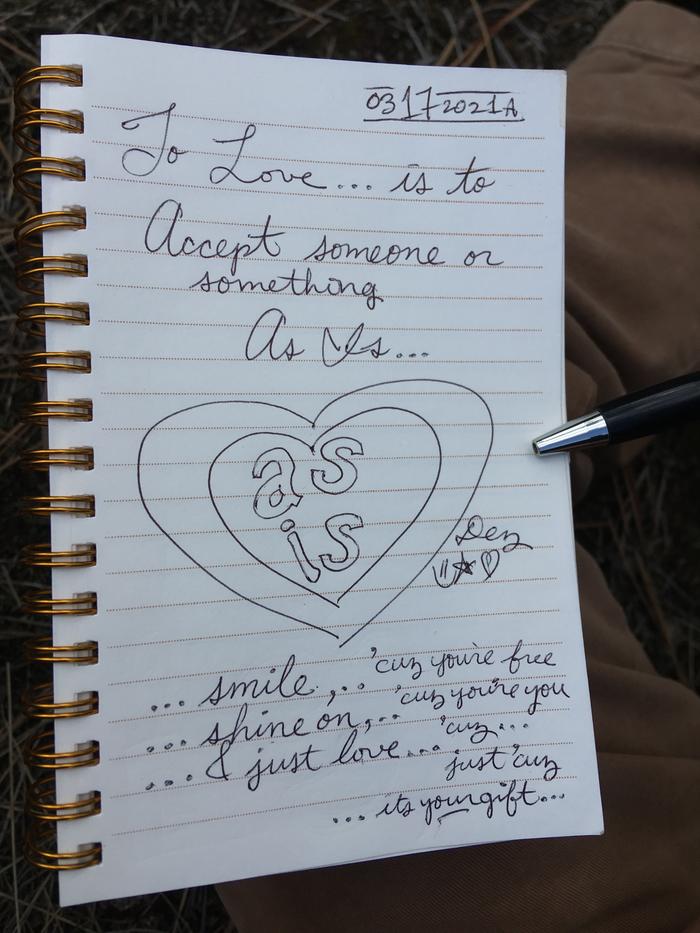 03172021A
To Love... is to
Accept someone or
something
As Is...
as
is
Dez
... smile,.. 'cuz you're free
... shine on,.. 'cuz you're you
... & just love... 'cuz...
just 'cuz
... its your gift...